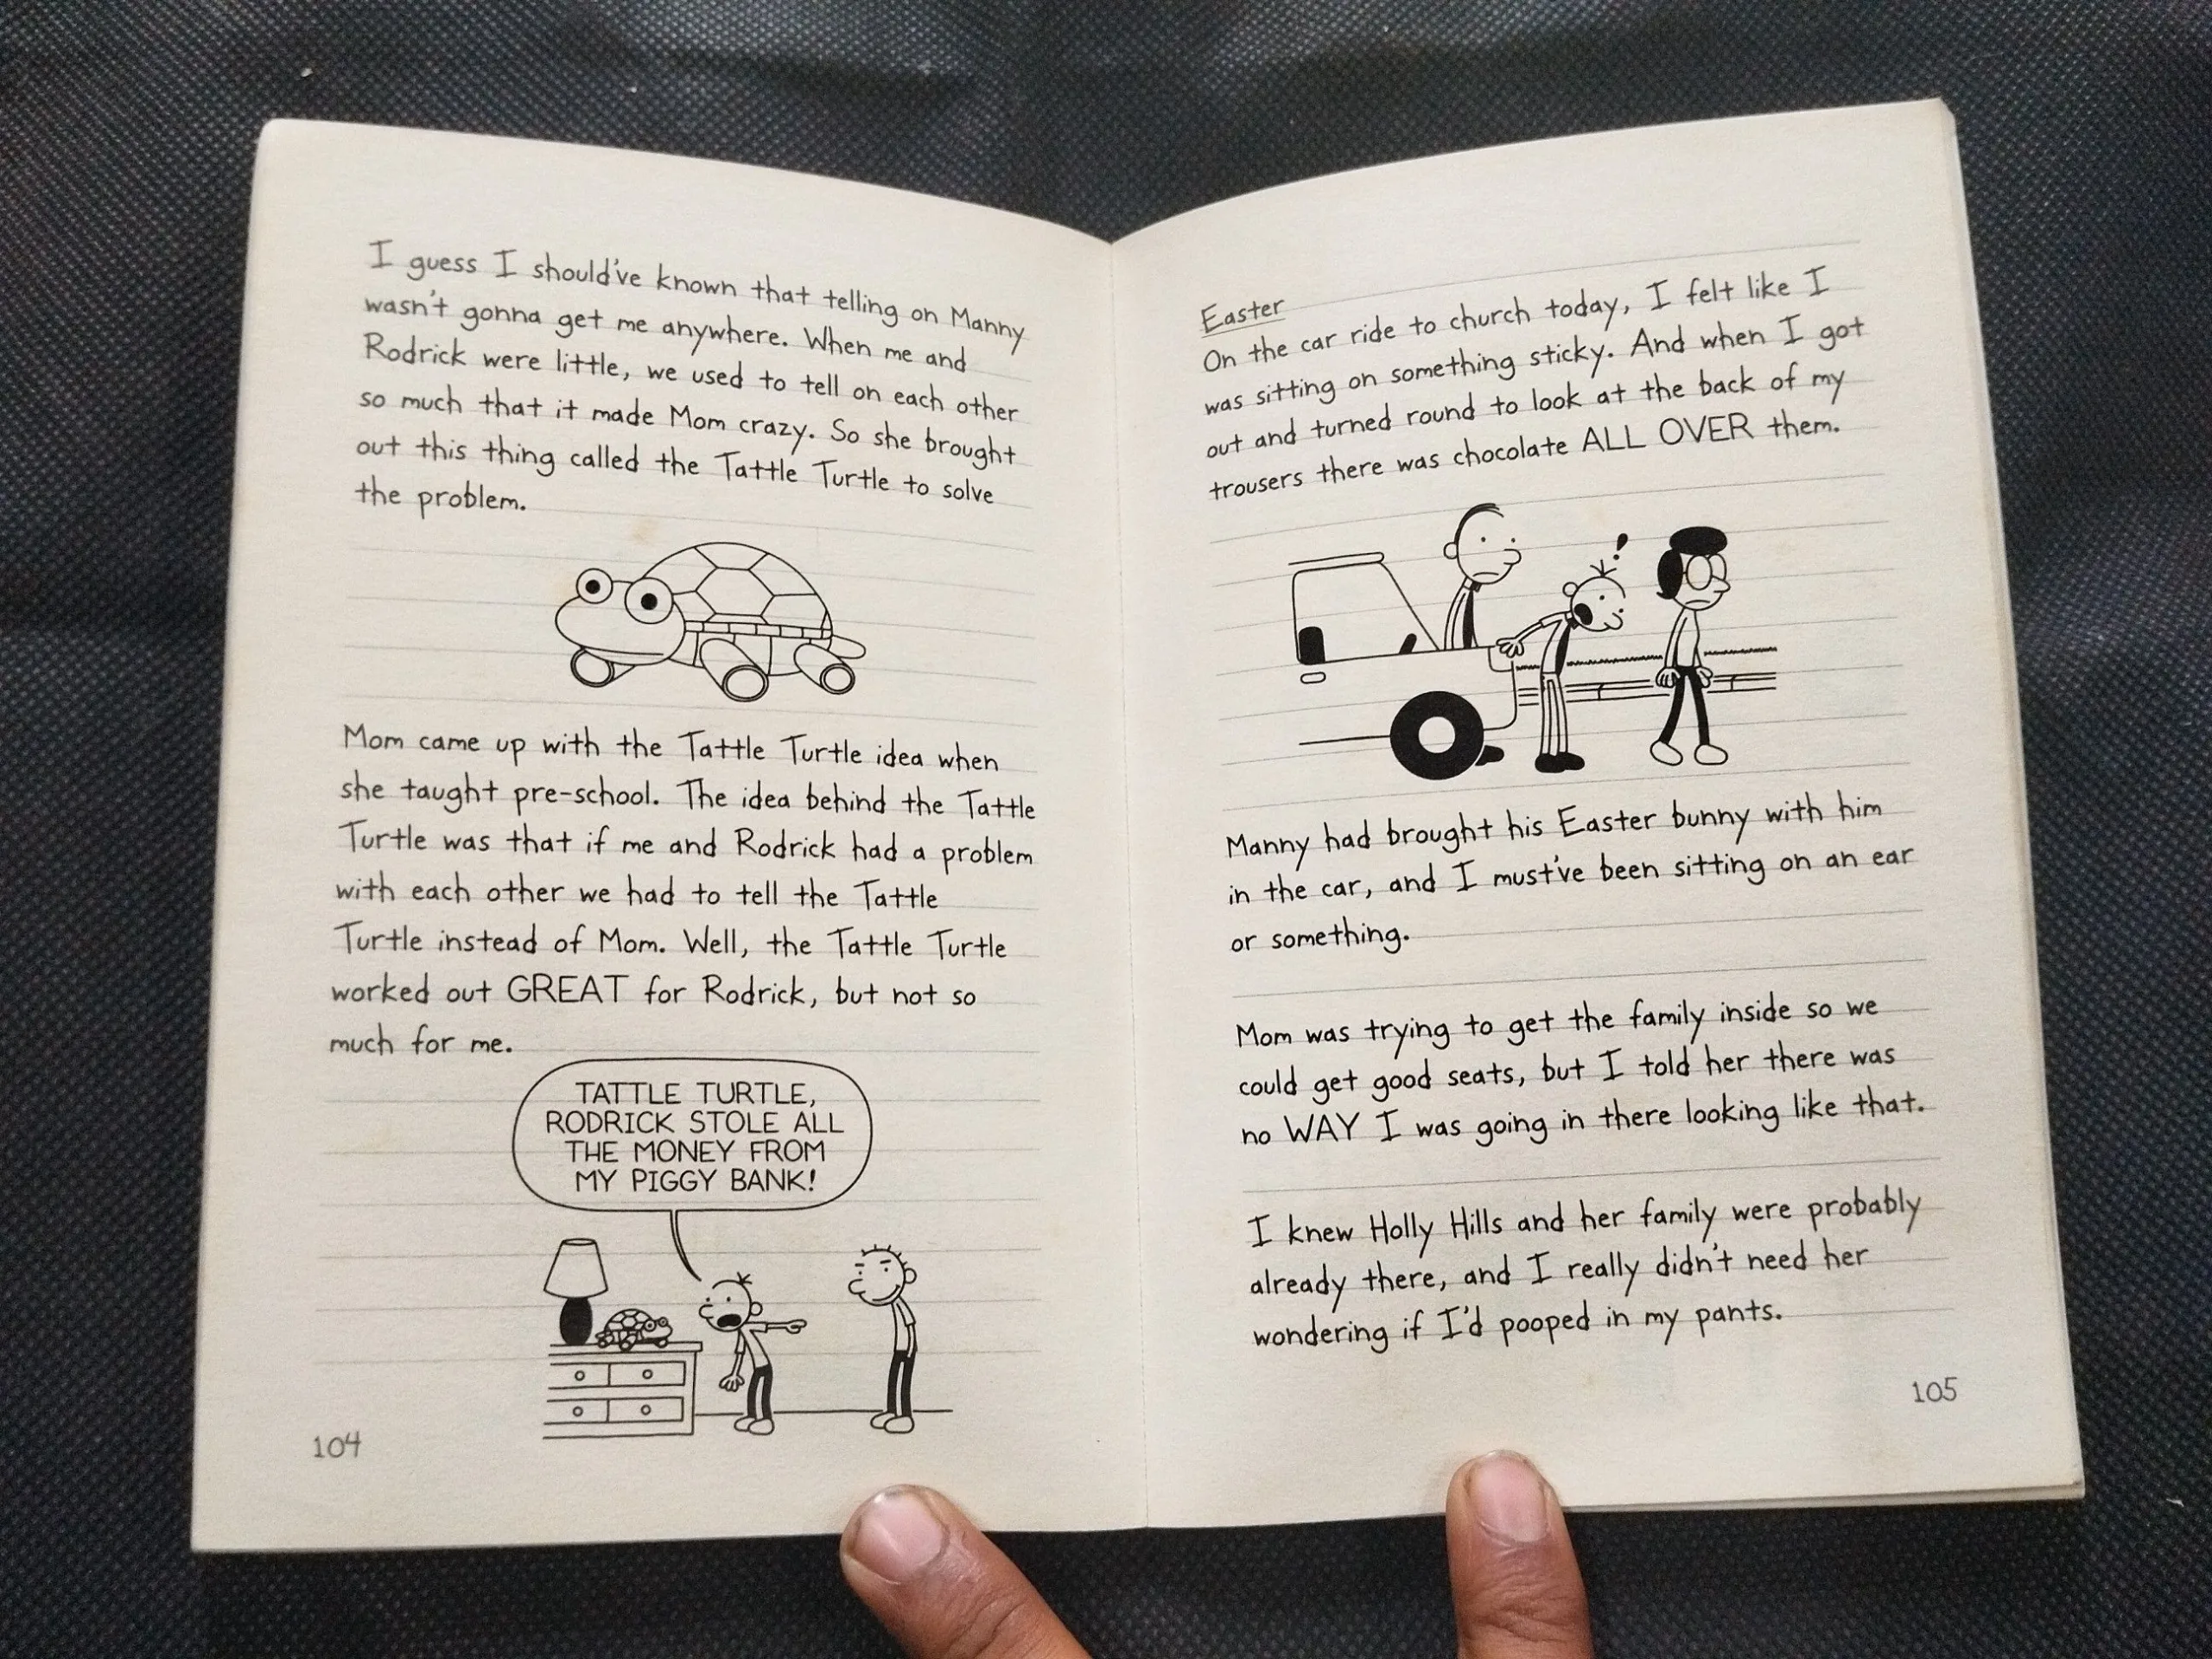 I guess I should've known that telling on Manny
wasn't gonna get me anywhere. When me and
Rodrick were little, we used to tell on each other
so much that it made Mom crazy. So she brought
out this thing called the Tattle Turtle to solve
the problem.
Mom came up with the Tattle Turtle idea when
she taught pre-school. The idea behind the Tattle
Turtle was that if me and Rodrick had a problem
with each other we had to tell the Tattle
Turtle instead of Mom. Well, the Tattle Turtle
worked out GREAT for Rodrick, but not so
much for me.
TATTLE TURTLE,
RODRICK STOLE ALL
THE MONEY FROM
MY PIGGY BANK!
104
Easter
On the car ride to church today, I felt like I
was sitting on something sticky. And when I got
out and turned round to look at the back of my
trousers there was chocolate ALL OVER them.
!
Manny had brought his Easter bunny with him
in the car, and I must've been sitting on an ear
or something.
Mom was trying to get the family inside so we
could get good seats, but I told her there was
no WAY I was going in there looking like that.
I knew Holly Hills and her family were probably
already there, and I really didn't need her
wondering if I'd pooped in my pants.
105